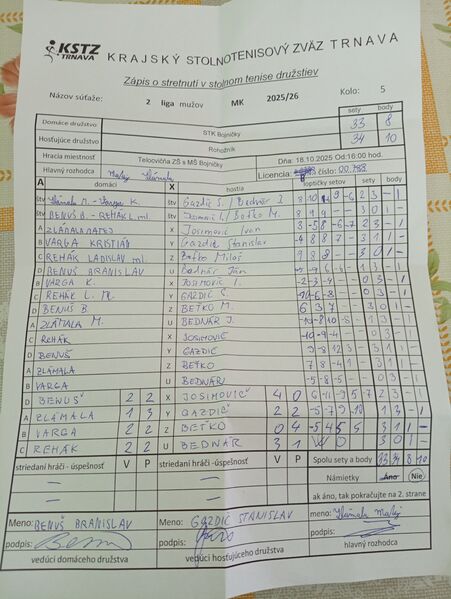 KSTZ TRNAVA KRAJSKÝ STOLNOTENISOVÝ ZVÄZ TRNAVA
Zápis o stretnutí v stolnom tenise družstiev
Názov súťaže: 2 liga mužov MK 2025/26 Kolo: 5
sety body
Domáce družstvo STK Bojničky 33 8
Hosťujúce družstvo Rohožník 34 10
Hracia miestnosť Telocvičňa ZŠ s MŠ Bojničky Dňa: 18.10.2025 Od:16:00 hod.
Hlavný rozhodca Matej Zlámala Licencia: číslo: 00788
A domáci X hostia loptičky setov sety body
štv Zlámala M. - Varga K. štv Gazdic S. / Bednár J.
štv BENUŠ B. - REHÁK L. ml. štv Josimovič I. / Beťko M. 8 1 9 - - 3 0 1 -
A ZLÁMALA MATEJ X Josimovič Ivan 3 -5 8 -6 -7 2 3 - 1
B VARGA KRISTIÁN Y Gazdic Stanislav -4 8 8 7 - 3 1 1 -
C REHÁK LADISLAV ml. Z Beťko Miloš 9 8 8 - - 3 0 1 -
D BENUŠ BRANISLAV U Bednár Ján
B VARGA K. X JOSIMOVIČ I. -2 -3 -4 - - 0 3 - 1
C REHÁK L. ML. Y GAZDIC S.
D BENUŠ B. Z BEŤKO M. 6 3 7 - - 3 0 1 -
A ZLÁMALA M. U BEDNÁR J.
C REHÁK X JOSIMOVIČ
D BENUŠ Y GAZDIC
A ZLÁMALA Z BEŤKO 7 8 -4 1
B VARGA U BEDNÁR -5 -8 -5 - - 0 3 - 1
D BENUŠ 2 2 X JOSIMOVIČ 4 0 6 -11 -9 5 -7 2 3 - 1
A ZLÁMALA 1 3 Y GAZDIC 2 2 -5 -7 9 -10 1 3 - 1
B VARGA 2 2 Z BEŤKO 0 4 -5 4 5 5 3 1 1 -
C REHÁK 2 2 U BEDNÁR 3 1 W O 3 0 1 -
striedaní hráči - úspešnosť V P striedaní hráči - úspešnosť V P Spolu sety a body 33 34 8 10
Námietky Áno Nie
ak áno, tak pokračujte na 2. strane
Meno: BENUŠ BRANISLAV Meno: GAZDIC STANISLAV meno: Zlámala Matej
podpis: podpis: podpis:
vedúci domáceho družstva vedúci hosťujúceho družstva hlavný rozhodca